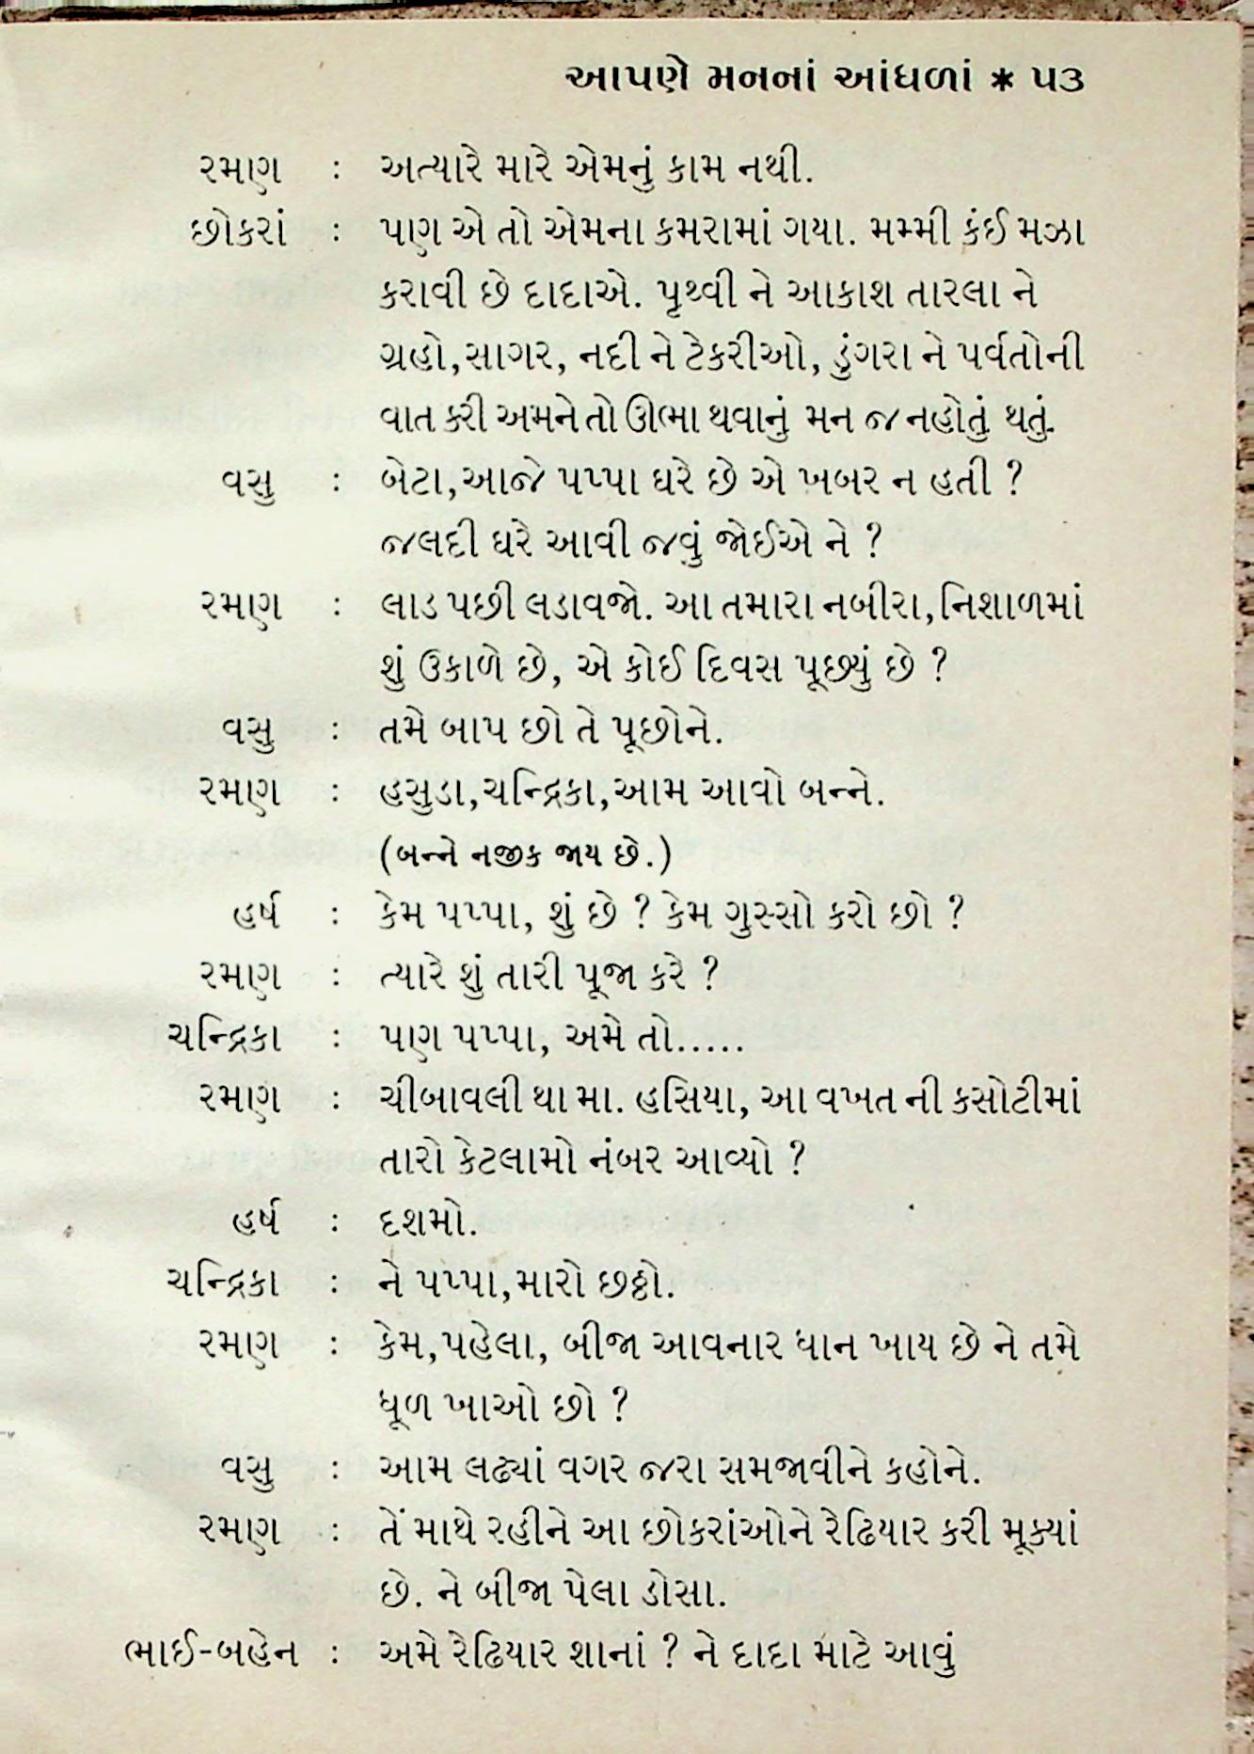 આપણે મનનાં આંધળાં * ૫૩
રમાણ : અત્યારે મારે એમનું કામ નથી.
છોકરાં : પણ એ તો એમના કમરામાં ગયા. મમ્મી કંઈ મઝા
કરાવી છે દાદાએ. પૃથ્વી ને આકાશ તારલા ને
ગ્રહો,સાગર, નદી ને ટેકરીઓ, ડુંગરા ને પર્વતોની
વાત કરી અમને તો ઊભા થવાનું મન જ નહોતું થતું.
વસુ : બેટા,આજે પપ્પા ઘરે છે એ ખબર ન હતી ?
જલદી ઘરે આવી જવું જોઈએ ને ?
રમાણ : લાડ પછી લડાવજો. આ તમારા નબીરા,નિશાળમાં
શું ઉકાળે છે, એ કોઈ દિવસ પૂછ્યું છે ?
વસુ : તમે બાપ છો તે પૂછોને.
રમાણ : હસુડા,ચન્દ્રિકા,આમ આવો બન્ને.
(બન્ને નજીક જાય છે.)
હર્ષ : કેમ પપ્પા, શું છે ? કેમ ગુસ્સો કરો છો ?
રમાણ : ત્યારે શું તારી પૂજા કરે ?
ચન્દ્રિકા : પણ પપ્પા, અમે તો.....
રમાણ : ચીબાવલી થા મા. હસિયા, આ વખત ની કસોટીમાં
તારો કેટલામો નંબર આવ્યો ?
હર્ષ : દશમો.
ચન્દ્રિકા : ને પપ્પા,મારો છઠ્ઠો.
રમાણ : કેમ,પહેલા, બીજા આવનાર ધાન ખાય છે ને તમે
ધૂળ ખાઓ છો ?
વસુ : આમ લઢ્યાં વગર જરા સમજાવીને કહોને.
રમાણ : તેં માથે રહીને આ છોકરાંઓને રેઢિયાર કરી મૂક્યાં
છે. ને બીજા પેલા ડોસા.
ભાઈ-બહેન : અમે રેઢિયાર શાનાં ? ને દાદા માટે આવું